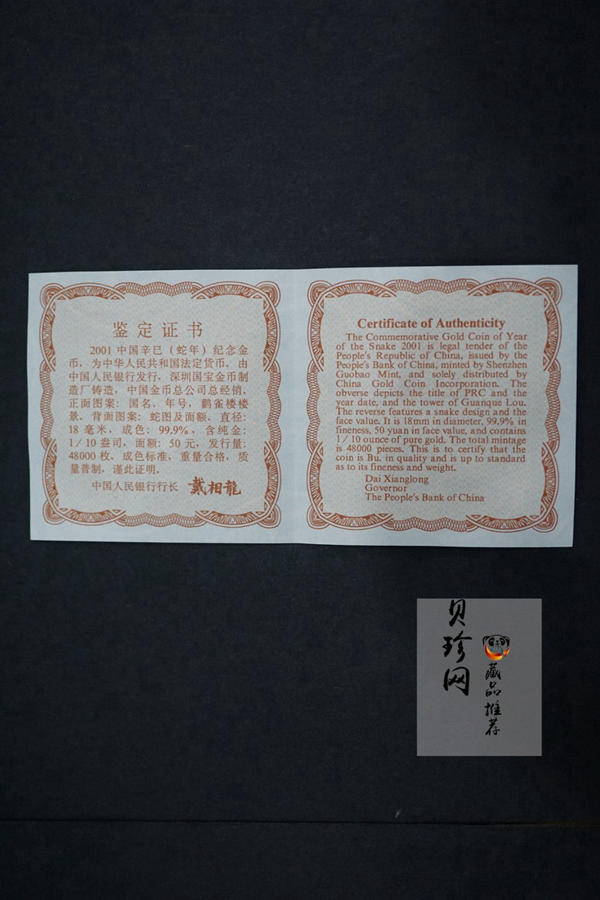 鉴定证书
2001中国辛巳（蛇年）纪念金
币，为中华人民共和国法定货币。由
中国人民银行发行，深圳国宝金币制
造厂铸造，中国金币总公司总经销，
正面图案：国名、年号，鹳雀楼楼
景。背面图案：蛇图及面额。直径：
18毫米，成色：99.9%，含纯金：
1/10盎司，面额：50元，发行量：
48000枚。成色标准，重量合格，质
量普制，谨此证明。
中国人民银行行长 戴相龍
Certificate of Authenticity
The Commemorative Gold Coin of Year
of the Snake 2001 is legal tender of the
People's Republic of China, issued by the
People's Bank of China, minted by Shenzhen
Guobao Mint, and solely distributed by
China Gold Coin Incorporation. The
obverse depicts the title of PRC and the
year date, and the tower of Guanque Lou.
The reverse features a snake design and the
face value. It is 18mm in diameter, 99.9% in
fineness, 50 yuan in face value, and contains
1/10 ounce of pure gold. The total mintage
is 48000 pieces. This is to certify that the
coin is Bu. in quality and is up to standard
as to its fineness and weight.
Dai Xianglong
Governor
The People's Bank of China
贝珍网
藏品推荐